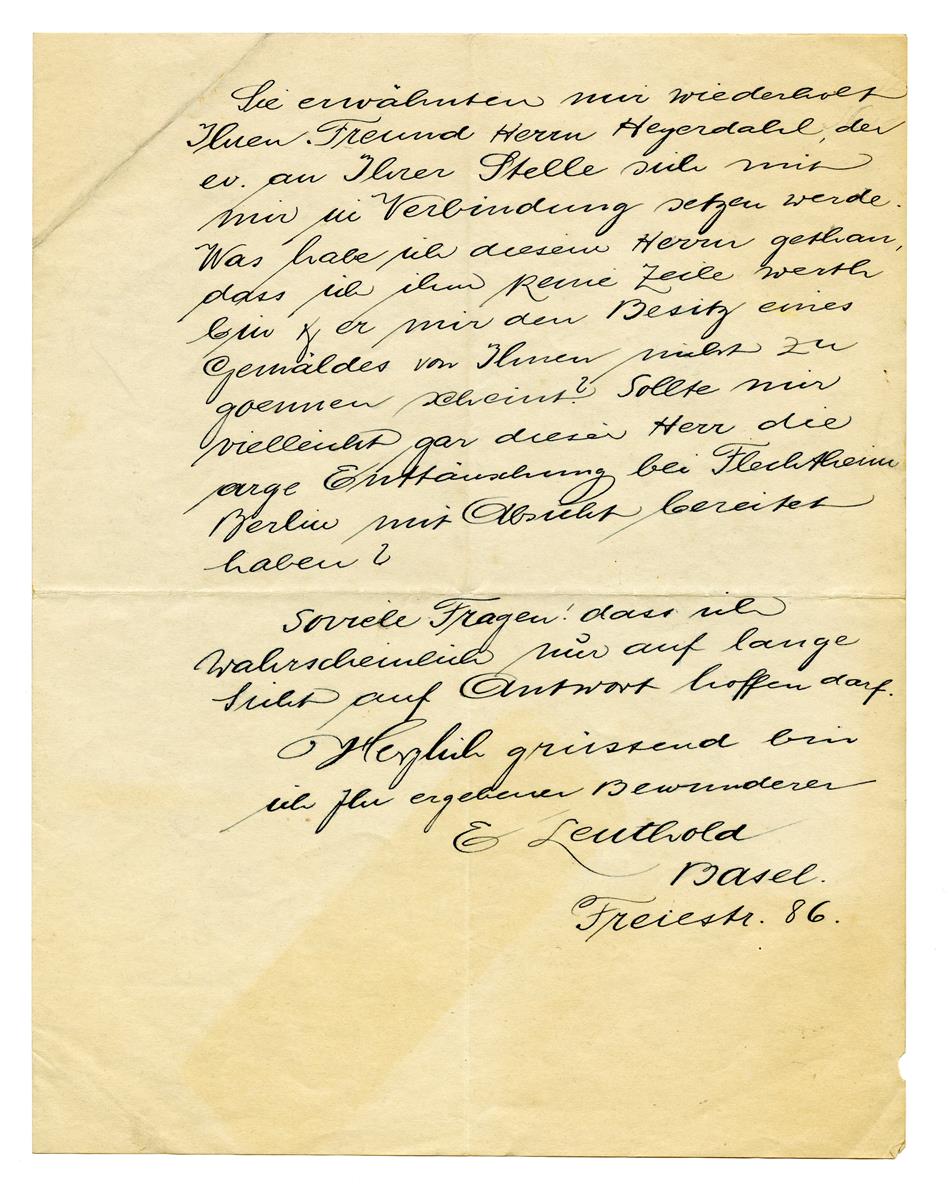 Sie erwähnten mir wiederholt
Ihren Freund Herrn Heyerdahl, der
ev. an Ihrer Stelle sich mit
mir in Verbindung setzen werde.
Was habe ich diesem Herrn gethan,
dass ich ihm keine Zeile werth
bin & er mir den Besitz eines
Gemäldes von Ihnen nicht zu
goennen scheint? Sollte mir
vielleicht gar dieser Herr die
arge Enttäuschung bei Flechtheim
Berlin mit Absicht bereitet
haben?
Soviele Fragen! dass ich
wahrscheinlich nur auf lange
Sicht auf Antwort hoffen darf.
Herzlich grüssend bin
ich Ihr ergebener Bewunderer
E Leuthold
Basel.
Freiestr. 86.